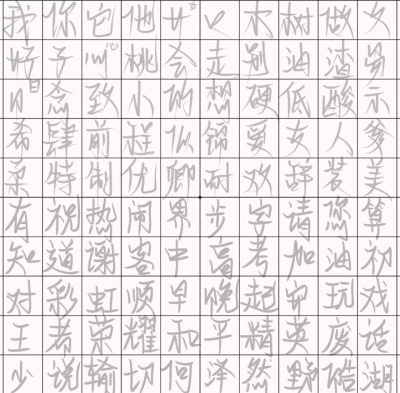 我你它他女心木树做女
好子心桃会走别油渣男
日念致小的想硬低酸示
希肆前趕似錦爱女人爹
柔特制优卿耐欢舒装美
有祝热闹界步字请您算
知道谢客中高考加油初
对彩虹顺早晚起安玩戏
王者荣耀和平精英废话
少说输切何泽然野酷湖